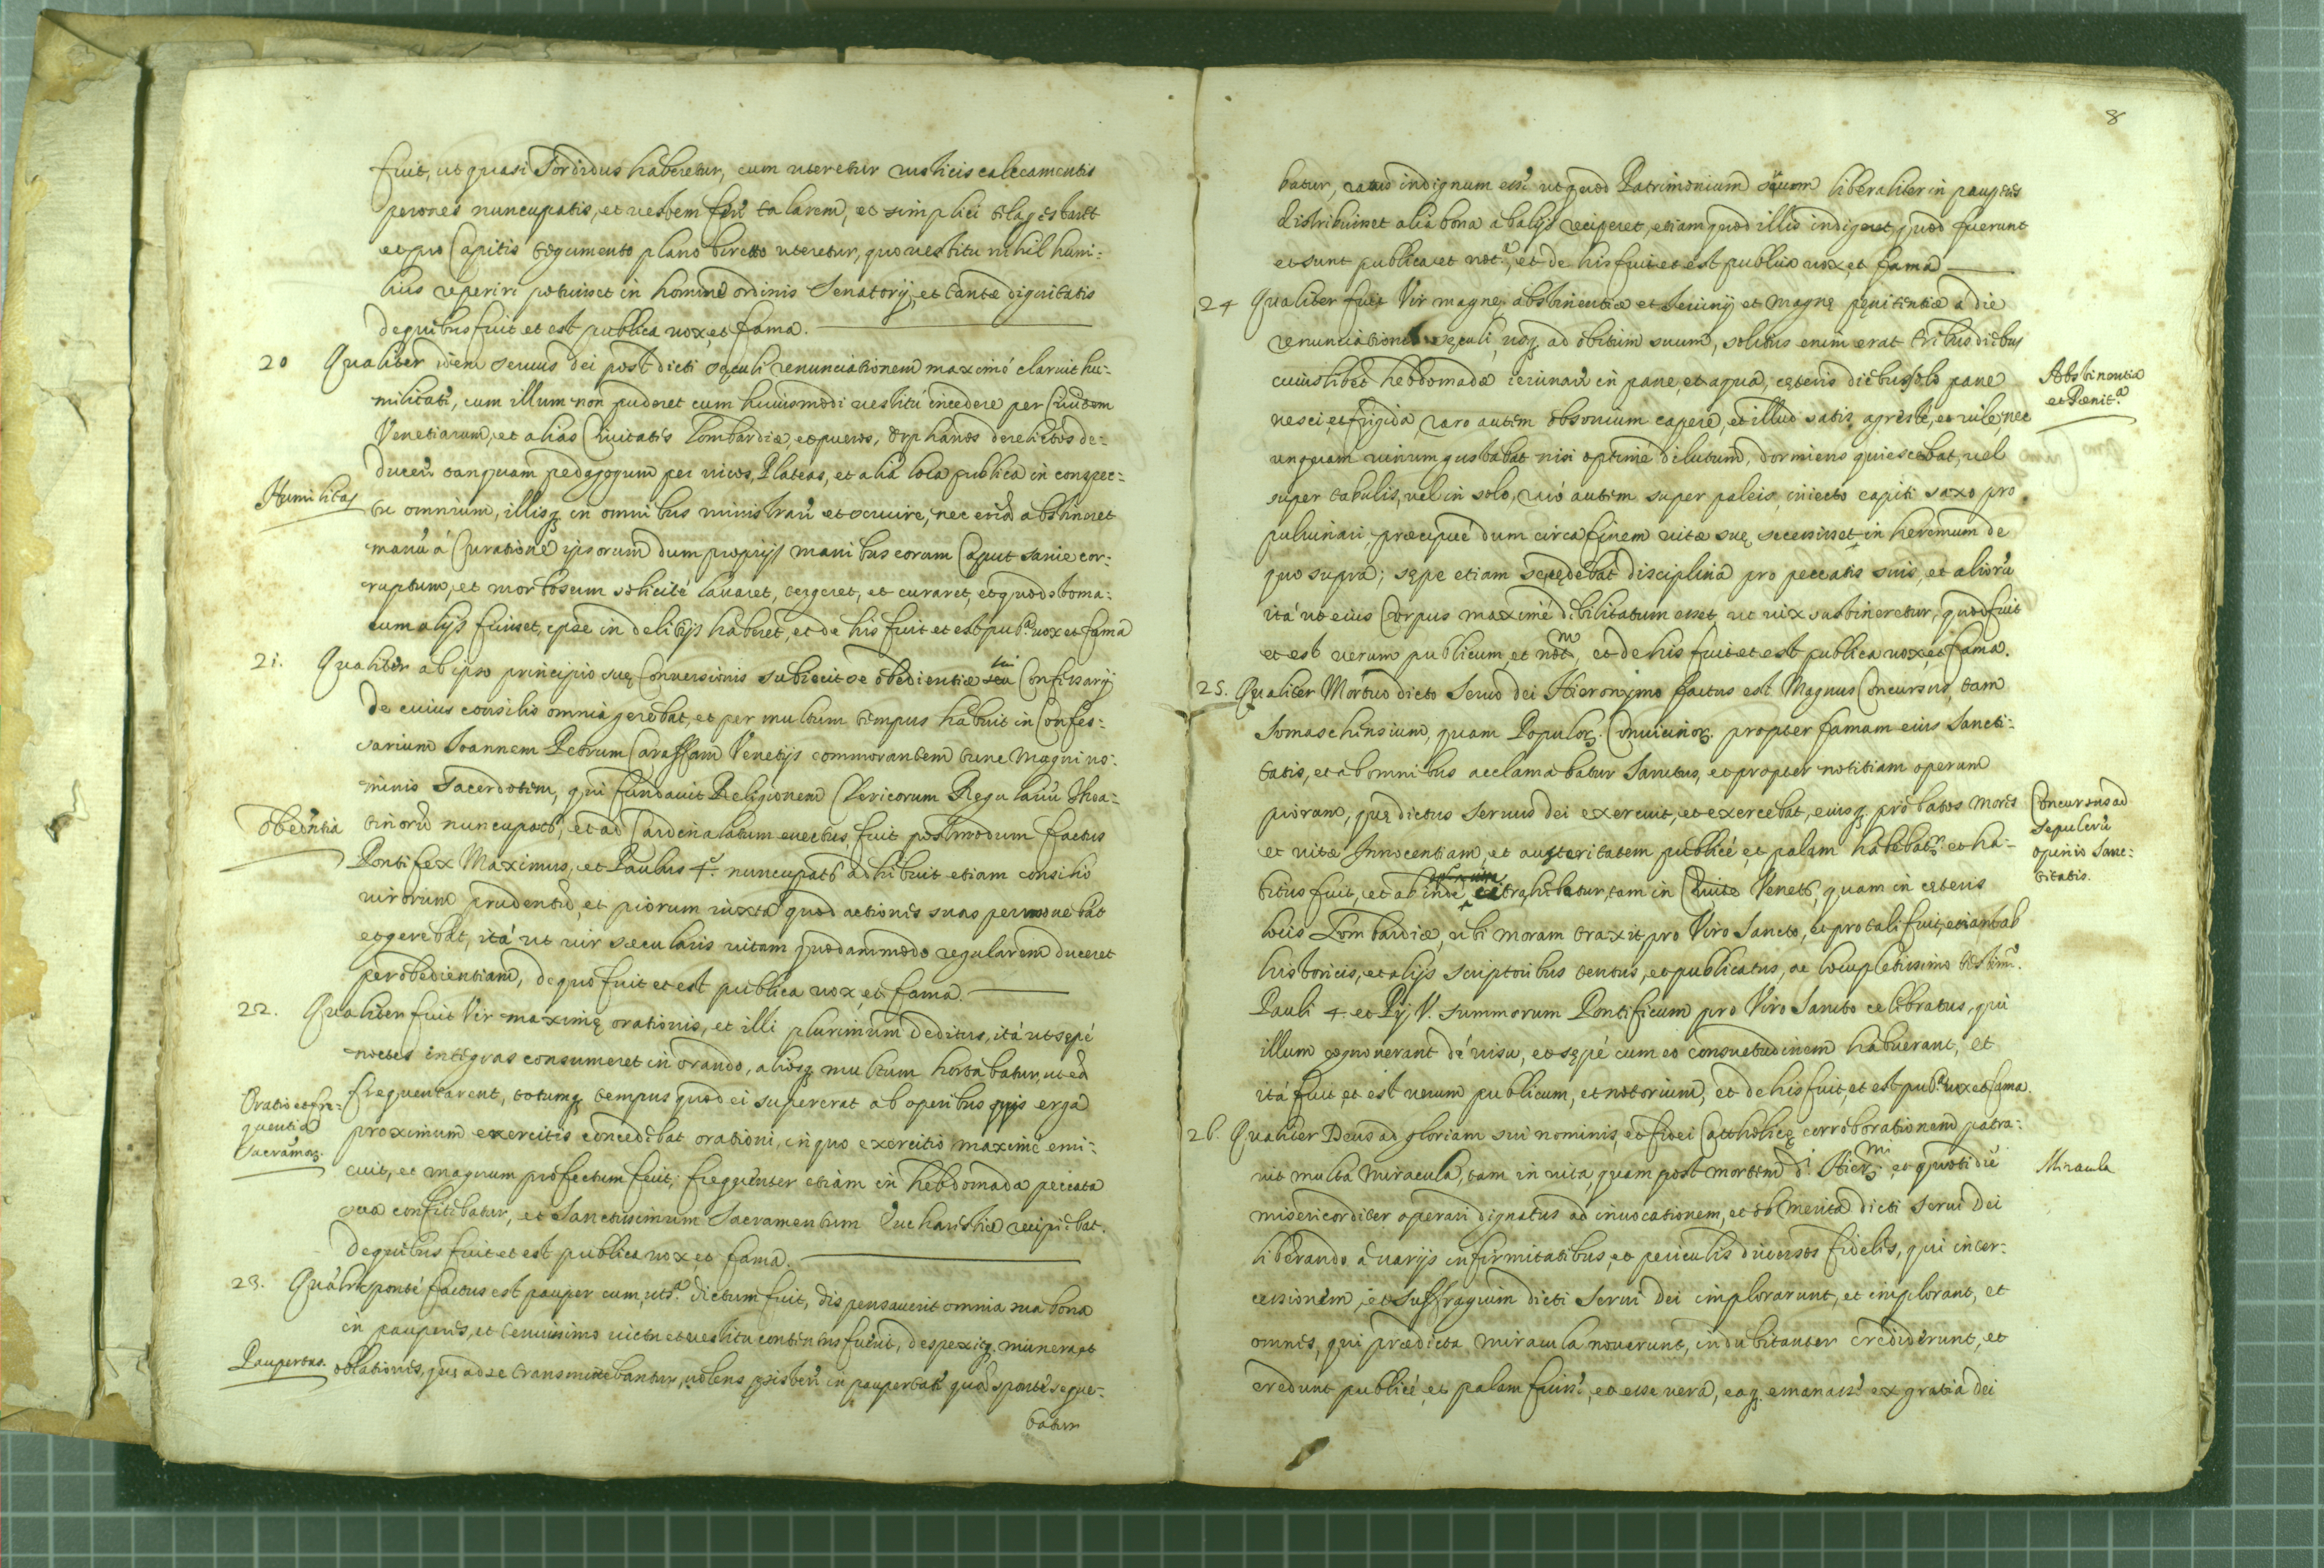 fuit, ut quasi sordidus haberetur, cum uteretur rusticis calceamentis
perones nuncupatis, et vestem talarem, et simplici
et pro Capitis tegumento plano biretto uteretur, quo vestitu nihil humi:
lius reperiri potuisset in homine ordinis Senatorij, et tantæ dignitatis
de quibus fuit et est publica vox, et fama.
20 Qualiter idem servus dei post dicti sęculi renunciationem maximè claruit hu:
militate, cum illum non puderet cum huiusmodi vestitu incedere per
Venetiarum, et alias Civitatis Lombardiæ, et pueros, orphanos derelictos de:
ducere tanquam pedagogum per vicos, Plateas, et alia loca publica in conspec:
Humilitas
tu omnium, illisq; in omnibus ministrare et servire, nec abstineret
manu à Curatione ipsorum dum proprijs manibus eorum Caput sanie cor:
ruptum, et morbosum solicitè lavaret, tergeret, et curaret, et quod stoma:
cum alijs fuisset, ipse in delitijs haberet, et de his fuit et est pub.ª vox et fama
21. Qualiter ab ipso principio suę Conversionis subiecit se obedientiæ sui Confessarij
de cuius consilio omnia gerebat, et per multum tempus habuit in Confes:
sarium Ioannem Petrum Caraffam Venetijs commorantem tunc Magni no:
minis Sacerdotem, qui fundavit Religionem Clericorum Regulariũ Thea:
obedientia
tinorũ nuncupat, et ad Cardinalatum evectus, fuit postmodum factus
Pontifex Maximus, et Paulus 4.s nuncupat adhibuit etiam consilio
virorum prudentũ, et piorum iuxta quod actiones suas permovebat
et gerebat, ità ut vir sæcularis vitam quodammodo regularem duceret
per obedientiam, de quo fuit et est publica vox et fama.
22. Qualiter fuit Vir maximę orationis, et illi plurimum deditus, ità ut sępè
noctes integras consumeret in orando, aliosq; multum hortabatur, ut eã
Oratio et fre:
quentia
Sacramor.
frequentarent, totumq; tempus quod ei supererat ab operibus pijs erga
proximum exercitis concedebat orationi, in quo exercitio maximè emi:
cuit, et magnum profectum fecit, frequenter etiam in hebdomada peccata
sua confitebatur, et Sanctissimum Sacramentum Eucharistiæ recipiebat.
de quibus fuit et est publica vox, et fama.
23. Qualiter spontè factus est pauper cum, ut s.ª dictum fuit, dispensaverit omnia sua bona
in pauperes, et tenuissimo victu et vestitu contentus fuerit, despexitq; munera et
Paupertas.
oblationes, quę ad se transmittebantur, volens persistere in paupertate quod spontè seque:
batur
8
batur, ratus indignum esse ut quod Patrimonium suum liberaliter in pauperes
distribuisset alia bona ab alijs reciperet, etiam quod illis indigeret, quod fuerunt
et sunt publica et not.ª, et de his fuit et est publica vox, et fama
24 Qualiter fuit Vir magnę abstinentiæ et Ieiunij et magnę pęnitentiæ a die
renunciationis sęculi, usq; ad obitum suum, solitus enim erat tribus diebus
cuiuslibet hebdomadæ ieiunare in pane, et aqua, cęteris diebus solo pane
Abstinentia
et Pænit.ª
vesci, et frigida, raro autem obsonium capere, et illud satis agreste, et vile, nec
unquam vinum gustabat nisi optimè dilutum, dormiens quiescebat, vel
super tabulis, vel in solo, rarò autem super paleis, iniecto capiti saxo pro
pulvinari, præcipuè dum circa finem vitæ suę secessisset in heremum de
quo supra; sępe etiam sę cędebat disciplina pro peccatis suis, et aliorũ
ità ut eius Corpus maximè debilitatum esset, ut vix sustineretur; quod fuit
et est verum publicum, et not.m, et de his fuit et est publica vox, et fama.
25. Qualiter Mortuo dicto Servo dei Hieronymo factus est Magnus Concursus, tam
Somaschensium, quam Populor. Convicinor. propter famam eius sancti:
tatis, et ab omnibus acclamabatur Sanctus, et propter notitiam operum
piorum, quę dictus Servus dei exercuit, et exercebat, eiusq; probatos mores
Concursus ad
sepulcrũ
opinio sanc:
titatis.
et vitæ Innocentiam, et austeritatem publicè, et palam habebatr. et ha-
bitus fuit, et ab inde, trahebatur, tam in Civite Venets, quam in cęteris
locis Lombardiæ, ubi moram traxit, pro Viro Sancto, et pro tali fuit, etiam ab
historicis, et alijs scriptoribus tentus, et publicatus, ac locupletissimo testim.o
Pauli 4. et Pij V. summorum Pontificum pro Viro Sancto celebratus, qui
illum cognoverant de visu, et sępè cum eo consuetudinem habuerant, et
ità fuit, et est verum publicum, et notorium, et de his fuit, et est pub.ª vox et fama.
26. Qualiter Deus ad gloriam sui nominis, et fidei Catholicę corroborationem patra:
vit multa Miracula, tam in vita, quam post mortem d.i Hier.mi, et quotidie
Miracula
misericorditer operari dignatus ad invocationem, et ob Merita dicti servi Dei
liberando a varijs infirmitatibus, et periculis diversos fideles, qui inter:
cessionem, et suffragium dicti Servi Dei implorarunt, et implorant, et
omnes, qui prædicta miracula noverunt, indubitanter crediderunt, et
credunt publicè, et palam fuisse, et esse vera, eaq; emanasse ex gratia dei